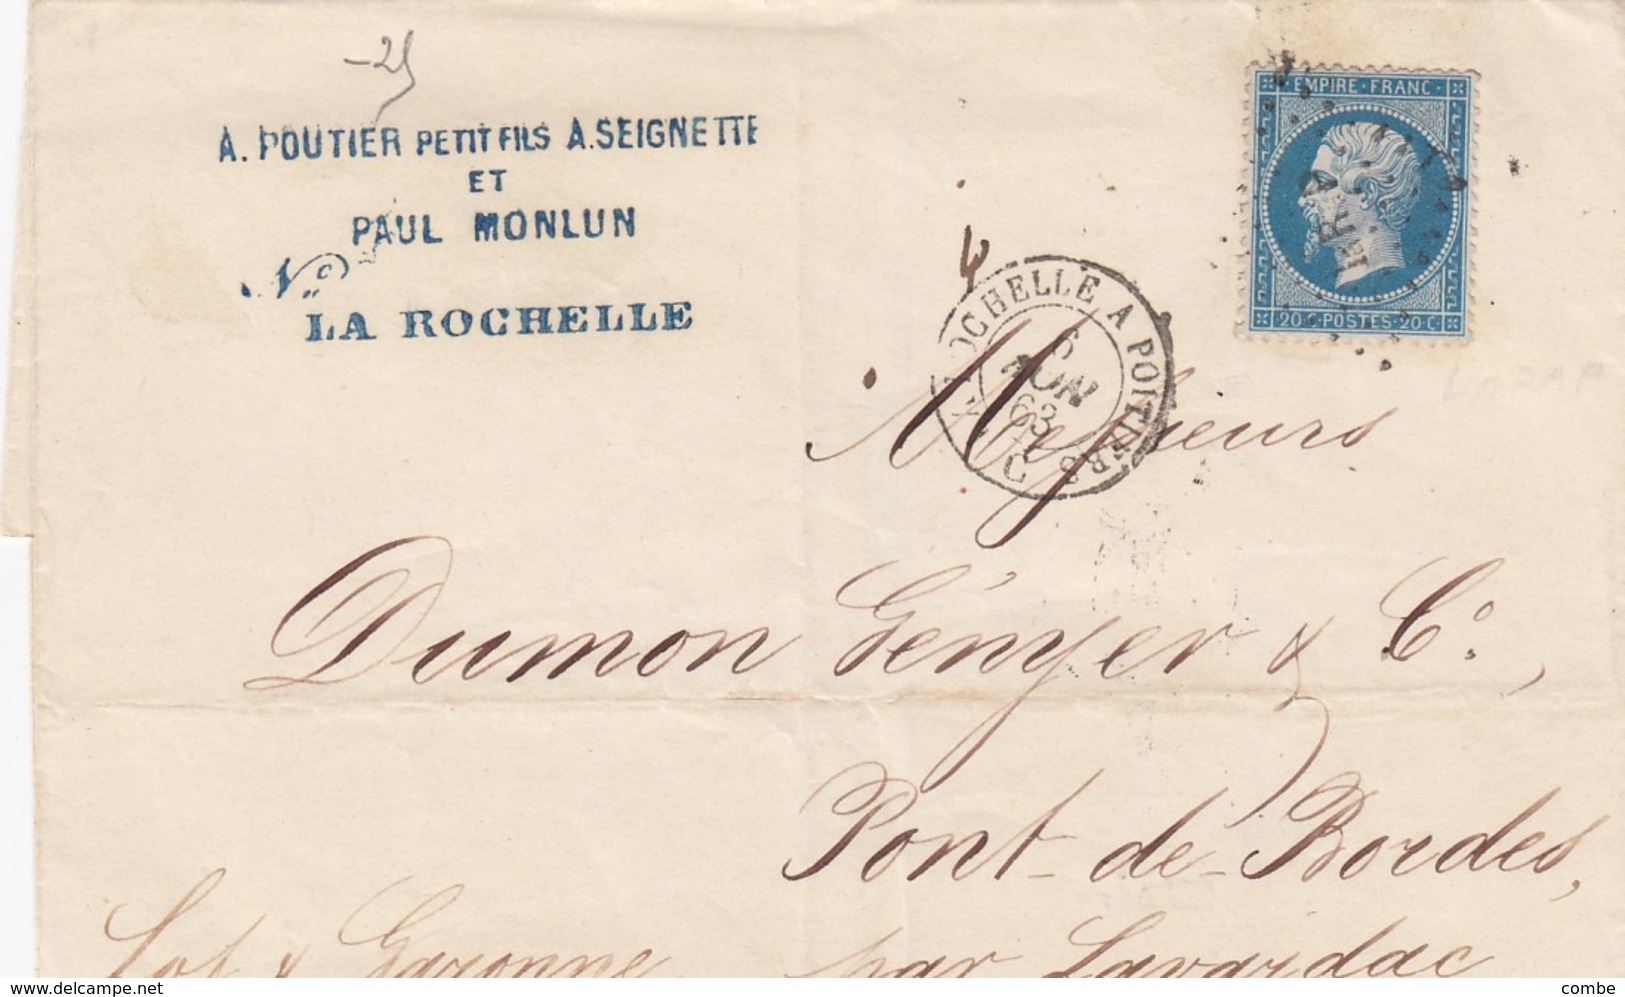 -25
A. POUTIER PETIT FILS A. SEIGNETTE
ET
PAUL MONLUN
No
LA ROCHELLE
EMPIRE · FRANC ·
20 C · POSTES · 20 C
LA ROCHELLE A POITIERS
6
JUIN
63
Messieurs
Dumon Gényer & Co.,
Pont-de-Bordes,
Lot & Garonne par Lavardac
www.delcampe.net
combe